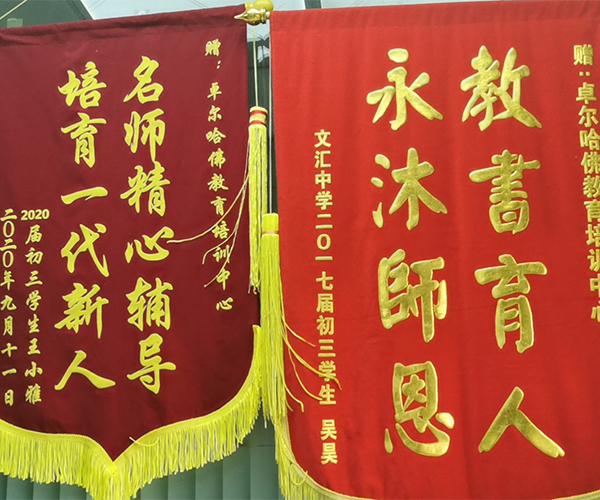 赠：卓尔哈佛教育培训中心
名师精心辅导
培育一代新人
2020届初三学生王小雅
二〇二〇年九月十一日
赠：卓尔哈佛教育培训中心
教书育人
永沐師恩
文汇中学二〇一七届初三学生 吴昊